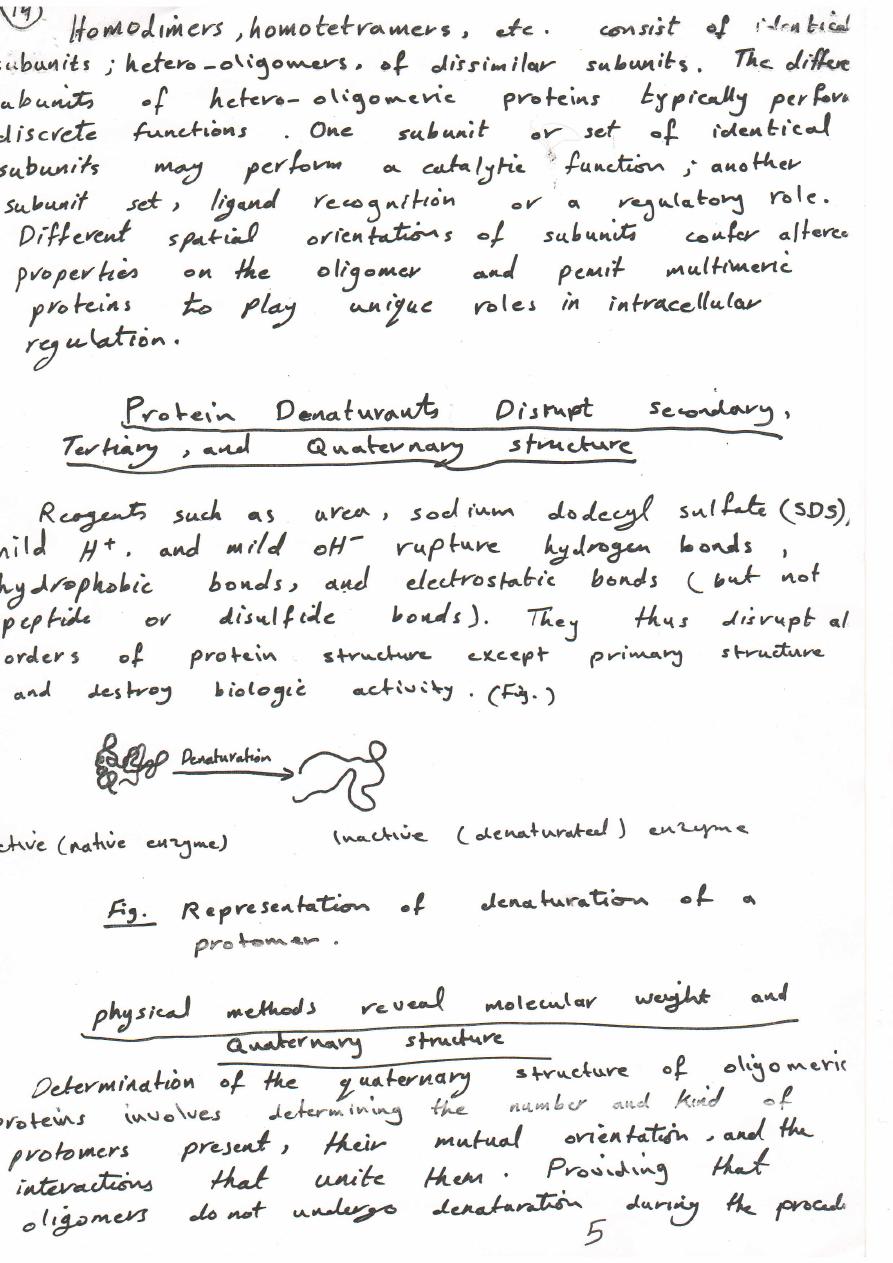 (14)
Homodimers, homotetramers, etc. consist of identical
ubunits; hetero-oligomers, of dissimilar subunits. The differe
ubunits of hetero-oligomeric proteins typically perform
discrete functions. One subunit or set of identical
subunits may perform a catalytic function; another
subunit set, ligand recognition or a regulatory role.
Different spatial orientations of subunits confer altered
properties on the oligomer and pemit multimeric
proteins to play unique roles in intracellular
regulation.
Protein Denaturants Disrupt secondary,
Tertiary, and Quaternary structure
Reagents such as urea, sodium dodecyl sulfate (SDS),
mild H⁺, and mild OH⁻ rupture hydrogen bonds,
hydrophobic bonds, and electrostatic bonds (but not
peptide or disulfide bonds). They thus disrupt al
orders of protein structure except primary structure
and destroy biologic activity. (Fig.)
Denaturation
ctive (native enzyme) Inactive (denaturated) enzyme
Fig. Representation of denaturation of a
protomer.
physical methods reveal molecular weight and
Quaternary structure
Determination of the quaternary structure of oligomeric
proteins involves determining the number and Kind of
protomers present, their mutual orientation, and the
interactions that unite them. Providing that
oligomers do not undergo denaturation during the proced
5